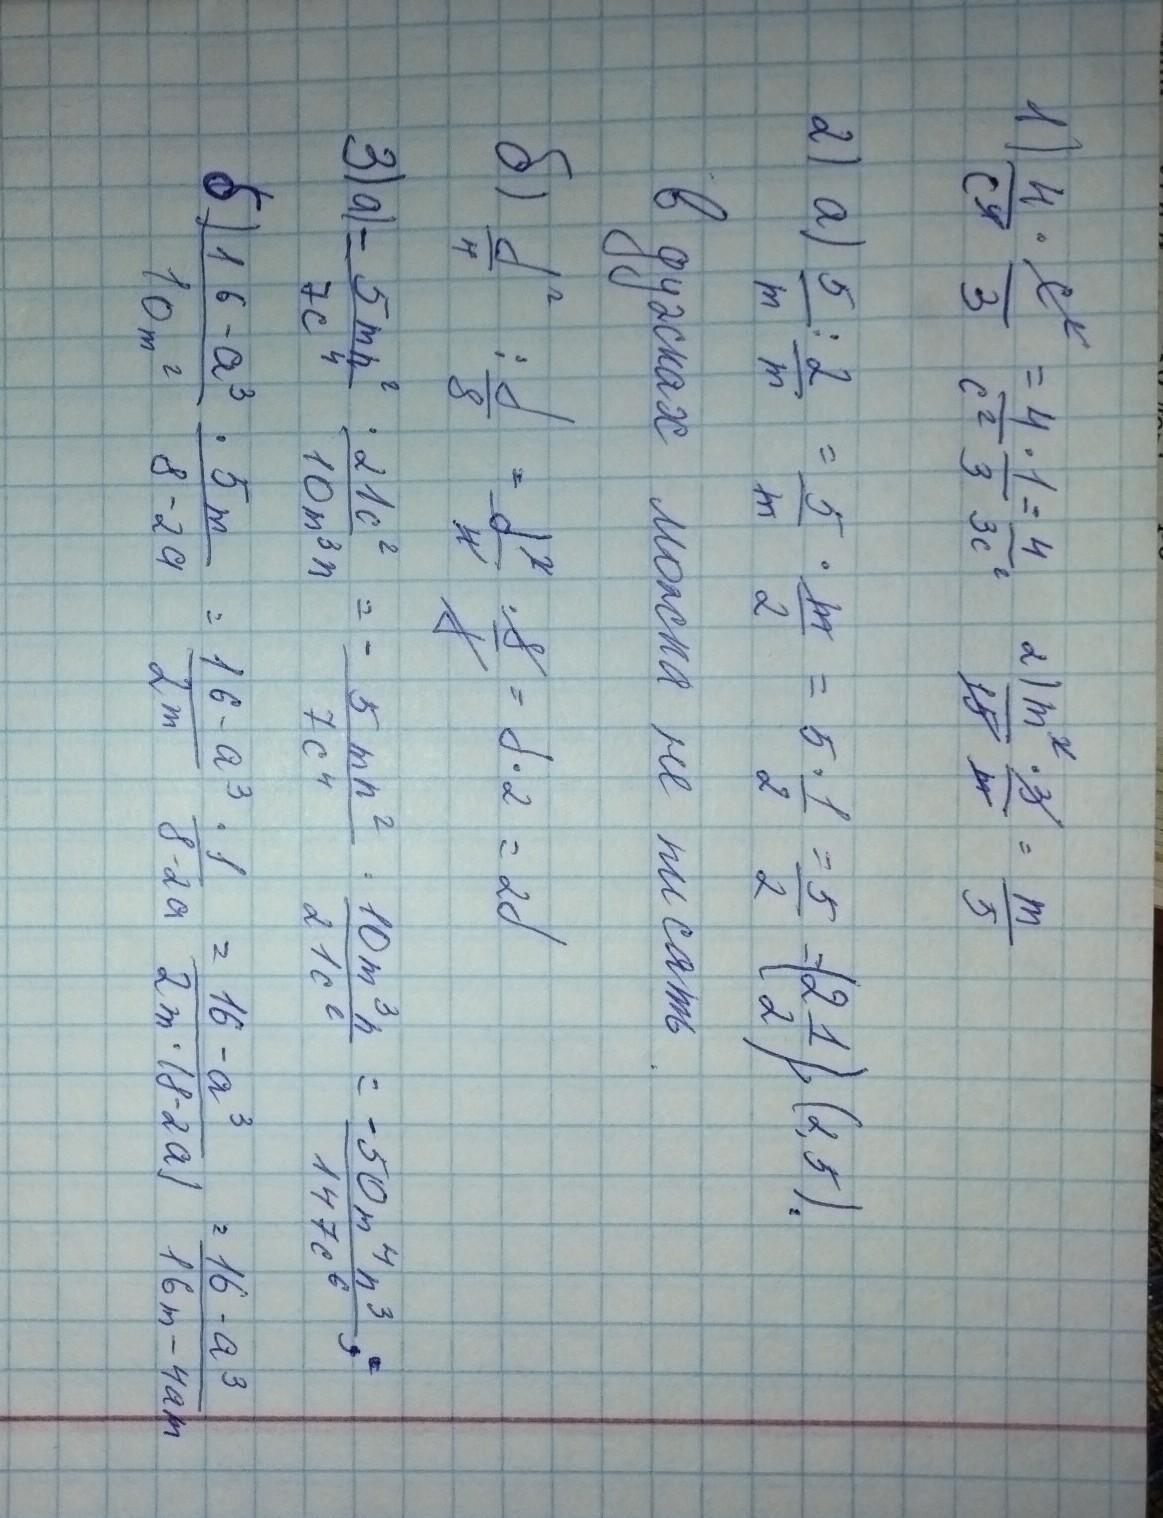 1) 4/c⁴ · c²/3 = 4/c² · 1/3 = 4/3c² 2) m²/15 · 3/m = m/5
2) а) 5/m : 2/m = 5/m · m/2 = 5 · 1/2 = 5/2 = (2 1/2), (2,5).
в дужсках можна не писать
б) d²/4 : d/8 = d²/4 · 8/d = d · 2 = 2d
3) а) - 5mn²/7c⁴ : 21c²/10m³n = - 5mn²/7c⁴ · 10m³n/21c² = - 50m⁴n³/147c⁶
б) 16-a³/10m² · 5m/8-2a = 16-a³/2m · 1/8-2a = 16-a³/2m·(8-2a) = 16-a³/16m-4am